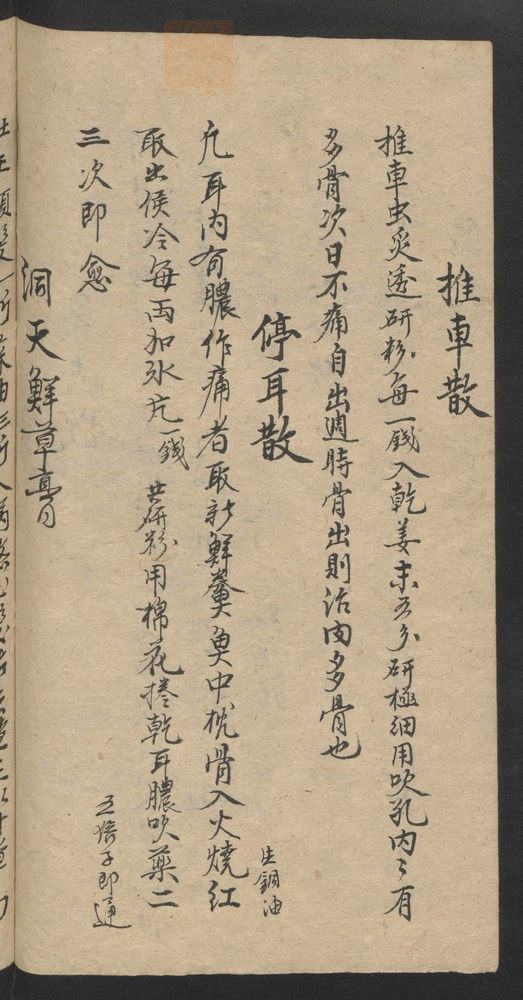 推車散
推車虫炙透研粉每一錢入乾姜末五分研極細用吹孔內々有
多骨次日不痛自出週時骨出則活肉多骨也
停耳散
生銅油
凡耳內有膿作痛者取新鮮糞臭中枕骨入火燒紅
取出侯冷每兩加氷片一錢共研粉用棉花捲乾耳膿吹藥二
三次即愈
五倍子即通
洞天鮮草膏